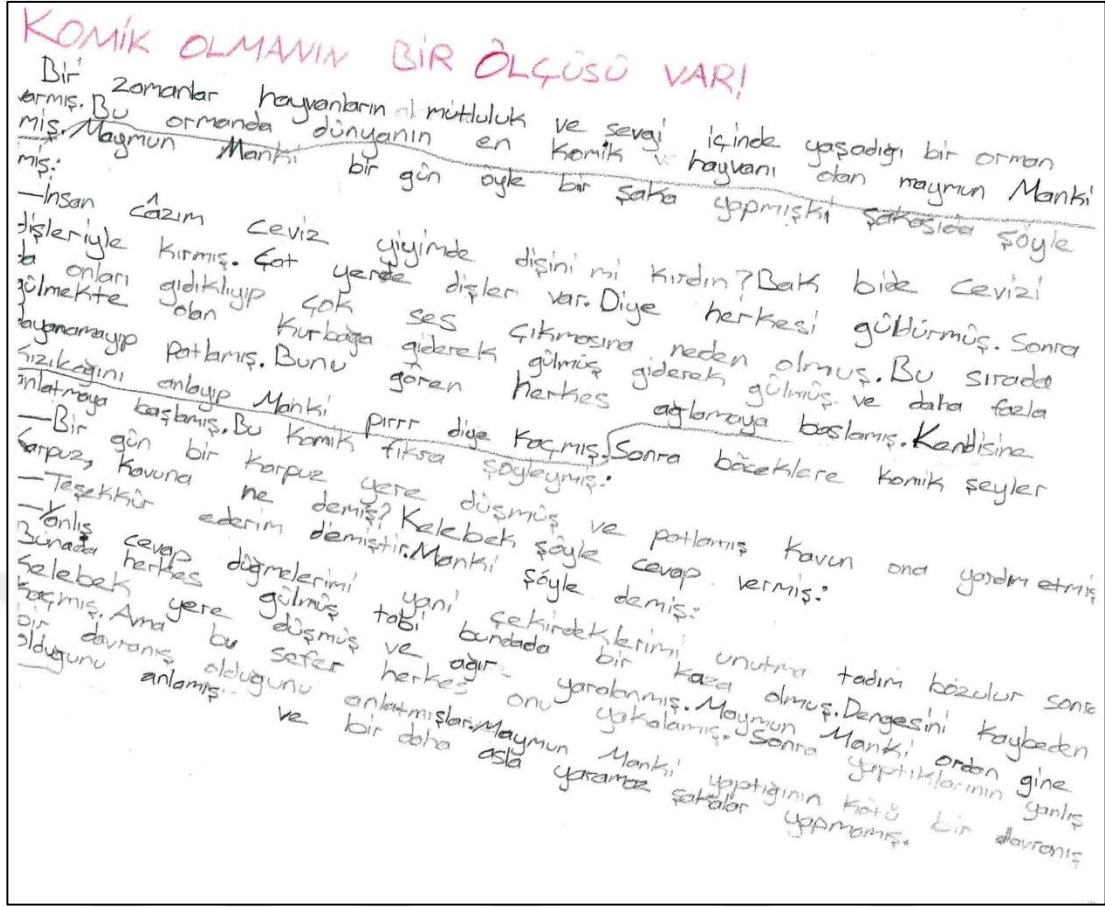 KOMİK OLMANIN BİR ÖLÇÜSÜ VAR!
Bir zamanlar hayvanların mutluluk ve sevgi içinde yaşadığı bir orman
varmış. Bu ormanda dünyanın en komik hayvanı olan maymun Manki
miş. Maymun Manki bir gün öyle bir şaka yapmışki şakasıda şöyle
miş:
—İnsan câzım ceviz yiyimde dişini mi kırdın? Bak bide cevizi
dişleriyle kırmış. Çat yerde dişler var. Diye herkesi güldürmüş. Sonra
da onları gıdıklıyıp çok ses çıkmasına neden olmuş. Bu sırada
gülmekte olan kurbağa giderek gülmüş giderek gülmüş ve daha fazla
dayanamayıp patlamış. Bunu gören herkes ağlamaya başlamış. Kendisine
kızıkcağını anlayıp Manki pırrr diye kaçmış. Sonra böceklere komik şeyler
anlatmaya başlamış. Bu komik fıkra şöyleymiş:
—Bir gün bir karpuz yere düşmüş ve patlamış kavun ona yardım etmiş
karpuz, kavuna ne demiş? Kelebek şöyle cevap vermiş:
—Teşekkür ederim demiştir. Manki şöyle demiş:
—Yanlış cevap düğmelerimi yani çekirdeklerimi unutma tadım bozulur sonra
Bunada herkes gülmüş tabi bundada bir kaza olmuş. Dengesini kaybeden
kelebek yere düşmüş ve ağır yaralanmış. Maymun Manki ordan gine
kaçmış. Ama bu sefer herkes onu yakalamış. Sonra yaptıklarının yanlış
bir davranış olduğunu anlatmışlar. Maymun Manki yaptığının kötü bir davranış
olduğunu anlamış ve bir daha asla yaramaz şakalar yapmamış.